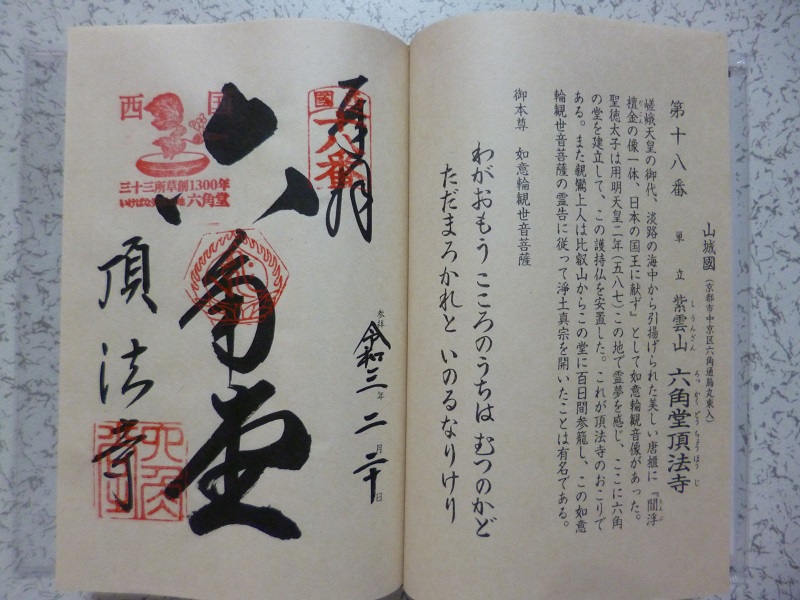 山城國(京都市中京区六角通烏丸東入)
第十八番 単立 紫雲山 六角堂頂法寺
しうんざん ろっかくどうちょうほうじ
嵯峨天皇の御代、淡路の海中から引揚げられた美しい唐櫃に『閻浮
檀金の像一体、日本の国王に献ず』として如意輪観音像があった。
聖徳太子は用明天皇二年(五八七)この地で霊夢を感じ、ここに六角
の堂を建立して、この護持仏を安置した。これが頂法寺のおこりで
ある。また親鸞上人は比叡山からこの堂に百日間参籠し、この如意
輪観世音菩薩の霊告に従って浄土真宗を開いたことは有名である。
御本尊 如意輪観世音菩薩
わがおもう こころのうちは むつのかど
ただまろかれと いのるなりけり
奉拝
國
十八番
西国
三十三所草創1300年
いけばな 六角堂
参拝 令和三年二月二十日
六角堂
頂法寺